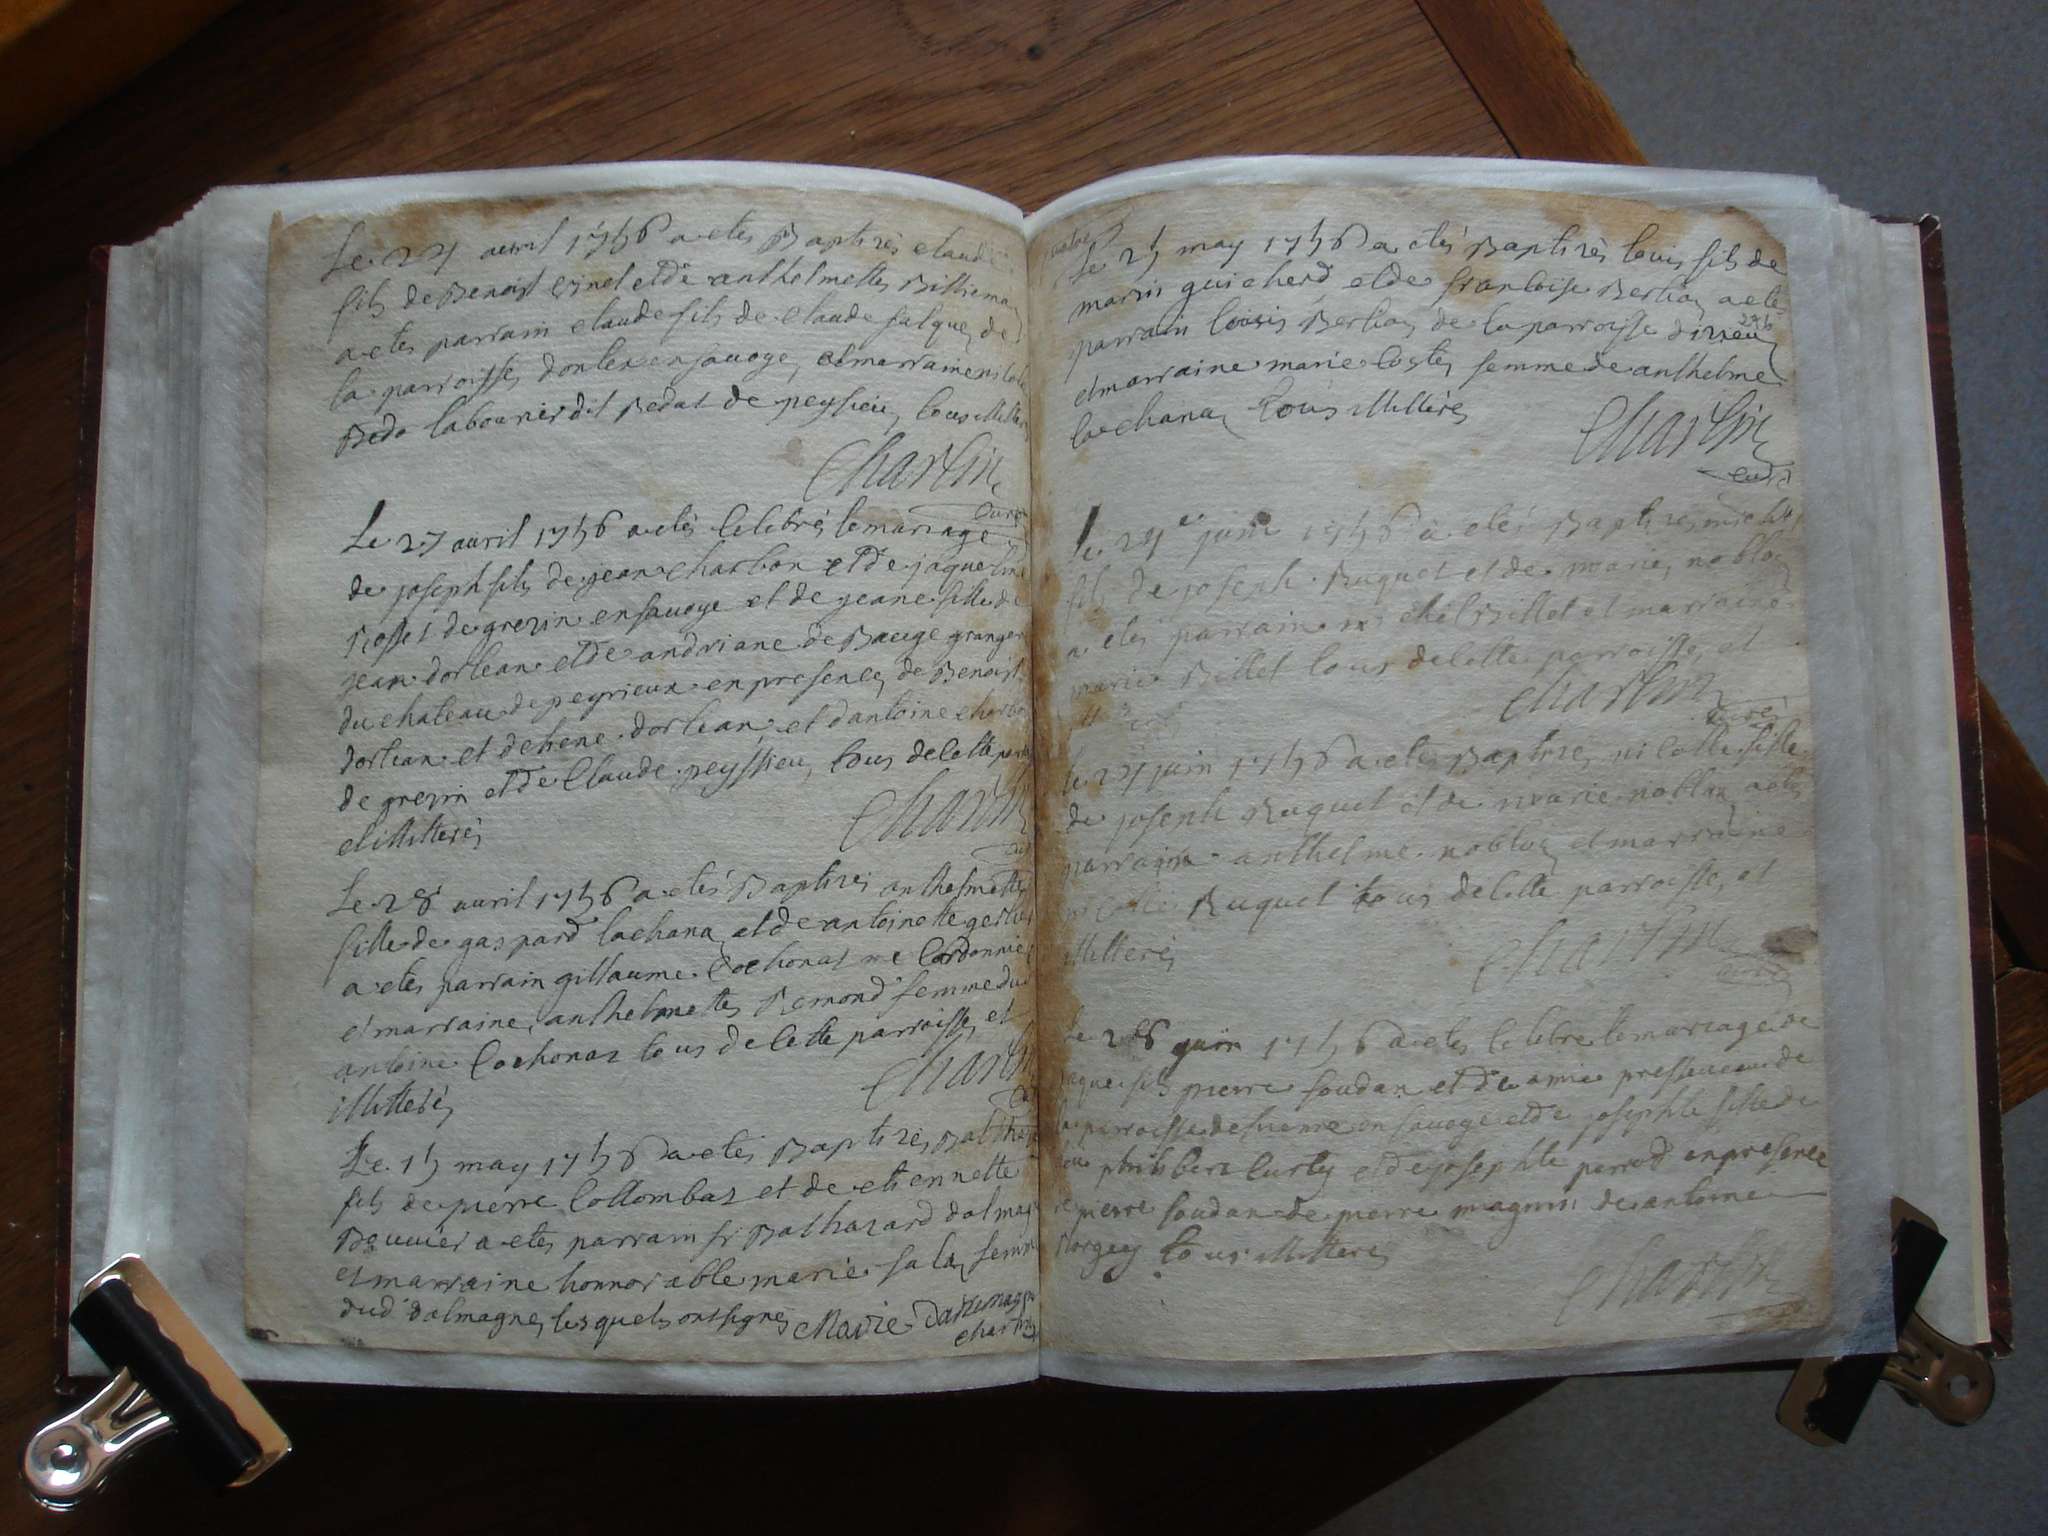 Le 24 avril 1756 a etés Baptisés claude
fils de Benoist et de anthelmettes Billiema
a etés parrain claude fils de claude falquez de
la parroisse, dontex en sauoye, et marraine nicole
Beda labourier dit Bedat de peysieu, tous illitterés
Charlin
curé
Le 27 auril 1756 a etés celebrés le mariage
de joseph fils de jean charbon et de jaqueline
Rosset de grezin en sauoye et de jeane fille de
jean dorlean et de andriane de Bauge granger
du chateau de peyrieux en presence de Benoist
dorlean et de hene dorlean et dantoine charbon
de grezin et de Claude peyssieu, tous de cette parr
et illitterés
Charlin
Le 28 auril 1756 a etés Baptisés anthelmettes
fille de gaspard lachana, et de antoinette
a etés parrain gillaume Cochonat me Cordonnier
et marraine, anthelmettes Remond femme dud
antoine Cochonat tous de cette parroisse, et
illitterés
Charlin
Le 15 may 1756 a etés Baptisés Balthazard
fils de pierre Collombat et de etiennette
Bouuier a etés parrain sr Balthazard dalmagne
et marraine honnorable marie sala, femme
dud dalmagne, lesquels ont signés Marie Dallemagne
Charlin
Le 25 may 1756 a etés Baptisés louis fils de
marin guicherd et de francoise Berlioz a etés
246
parrain louis Berlioz de la parroisse dizieu
et marraine marie costes femme de anthelme
lachana, tous illitterés
Charlin
curé
Le 24 juin 1756 a etés Baptisés michel
fils de joseph Ruquet et de marie, noblos
a etés parrain michel Billet et marraine
marie Billet tous de cette parroisse, et
Charlin
curé
le 24 juin 1756 a etés Baptisés, nicolle fille
de joseph Ruquet et de marie noblos a etés
parrain anthelme noblos et marraine
nicolle Ruquet tous de cette parroisse, et
illitterés
Charlin
curé
Le 28 juin 1756 a etés celebre le mariage de
jaque fils pierre soudan et de amie presseueau de
la parroisse de en sauoye et de josephte fille de
feu philibert curty et de josephte perrod en presence
de pierre soudan de pierre magnin de antoine
tous illitterés
Charlin